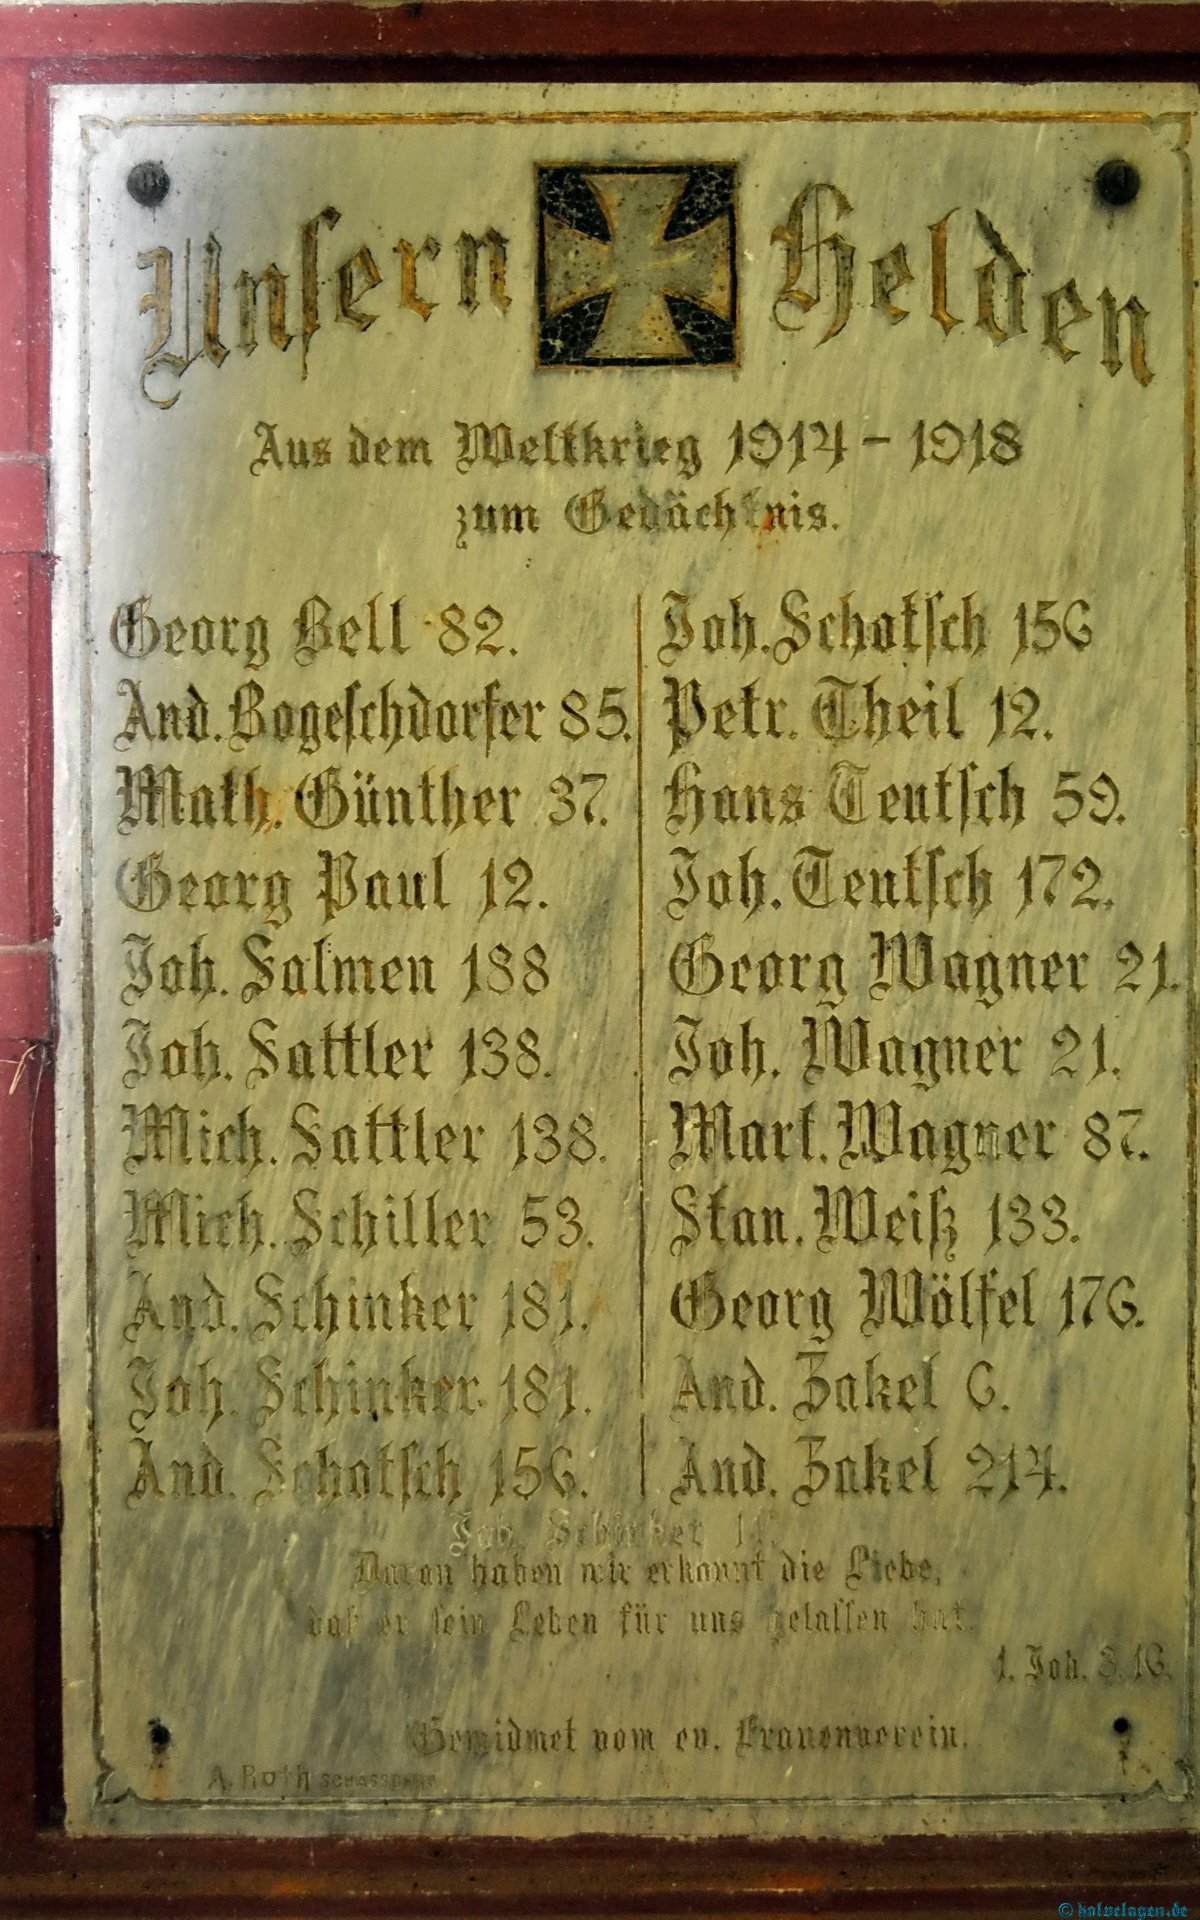 Unsern Helden
Aus dem Weltkrieg 1914 – 1918
zum Gedächtnis.
Georg Bell 82.
And. Bogeschdorfer 85.
Math. Günther 37.
Georg Paul 12.
Joh. Salmen 188
Joh. Sattler 138.
Mich. Sattler 138.
Mich. Schiller 53.
And. Schinker 181.
Joh. Schinker 181.
And. Schotsch 156.
Joh. Schotsch 156
Petr. Theil 12.
Hans Teutsch 59.
Joh. Teutsch 172.
Georg Wagner 21.
Joh. Wagner 21.
Mart. Wagner 87.
Stan. Weiß 133.
Georg Wölfel 176.
And. Zakel 6.
And. Zakel 214.
Joh. Schinker
Daran haben wir erkannt die Liebe,
daß er sein Leben für uns gelassen hat.
1. Joh. 3. 16.
Gewidmet vom ev. Frauenverein.
A. Roth
© halvelagen.de